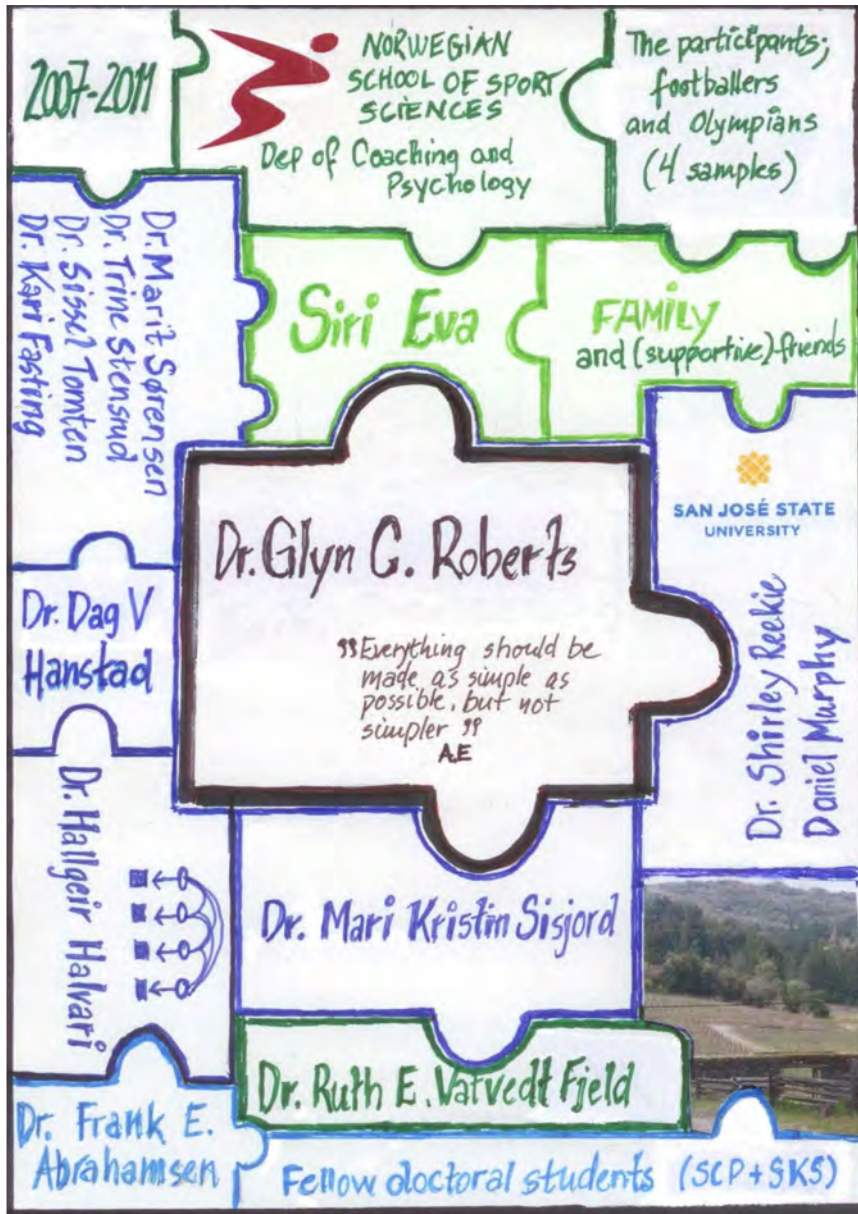 2007-2011
NORWEGIAN
SCHOOL OF SPORT
SCIENCES
Dep of Coaching and
Psychology
The participants;
footballers
and Olympians
(4 samples)
Dr. Marit Sørensen
Dr. Trine Stensrud
Dr. Sissel Tomten
Dr. Kari Fasting
Siri Eva
FAMILY
and (supportive) friends
SAN JOSÉ STATE
UNIVERSITY
Dr. Shirley Reekie
Daniel Murphy
Dr. Glyn C. Roberts
"Everything should be
made as simple as
possible, but not
simpler"
A.E
Dr. Dag V
Hanstad
Dr. Hallgeir Halvari
Dr. Mari Kristin Sisjord
Dr. Ruth E. Vatvedt Fjeld
Dr. Frank E.
Abrahamsen
Fellow doctoral students (SCP+SKS)